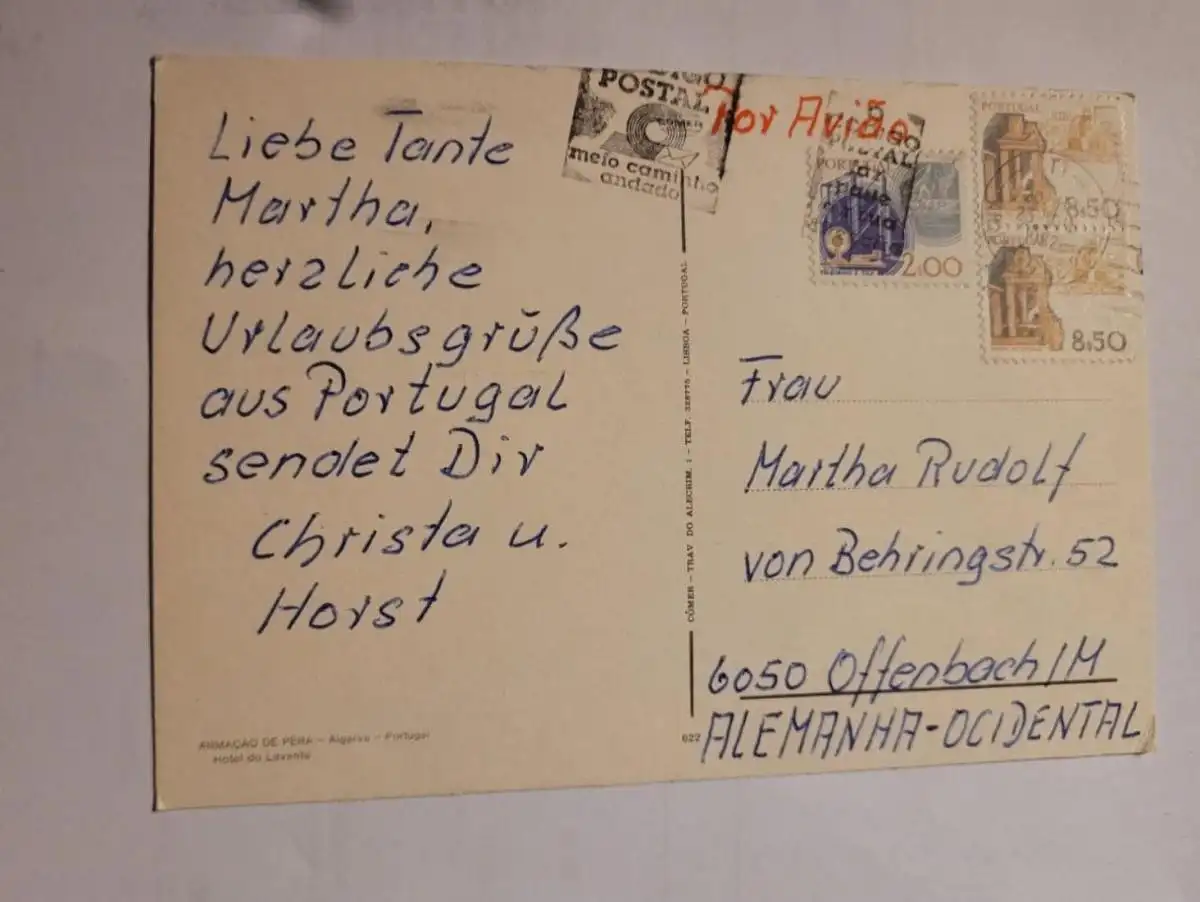 Liebe Tante
Martha,
herzliche
Urlaubsgrüße
aus Portugal
sendet Dir
Christa u.
Horst
ARMAÇÃO DE PERA – Algarve – Portugal
Hotel do Levante
POSTAL
meio caminho
andado
Por Avião
POSTAL
PORTUGAL
2.00
PORTUGAL
8.50
8.50
CÓMER – TRAV. DO ALECRIM, 1 – TELF. 328775 – LISBOA – PORTUGAL
622
Frau
Martha Rudolf
von Behringstr. 52
6050 Offenbach/M
ALEMANHA-OCIDENTAL